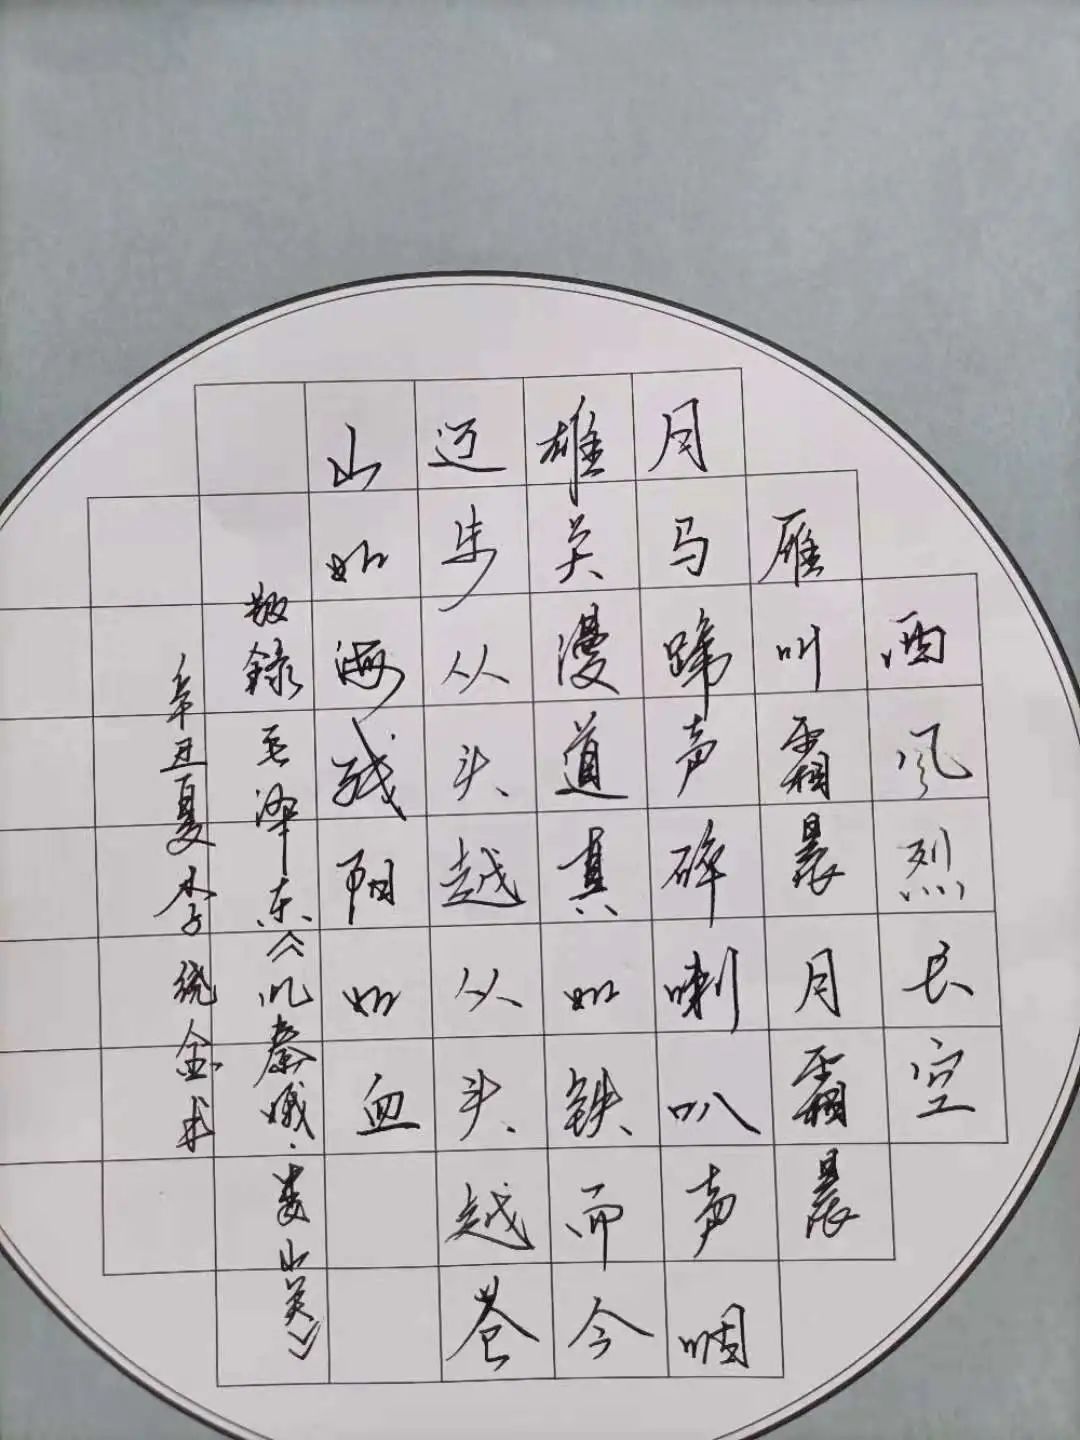 西风烈长空
雁叫霜晨月霜晨
月马蹄声碎喇叭声咽
雄关漫道真如铁而今
迈步从头越从头越苍
山如海残阳如血
敬録毛泽东《忆秦娥·娄山关》
辛丑夏李绕金